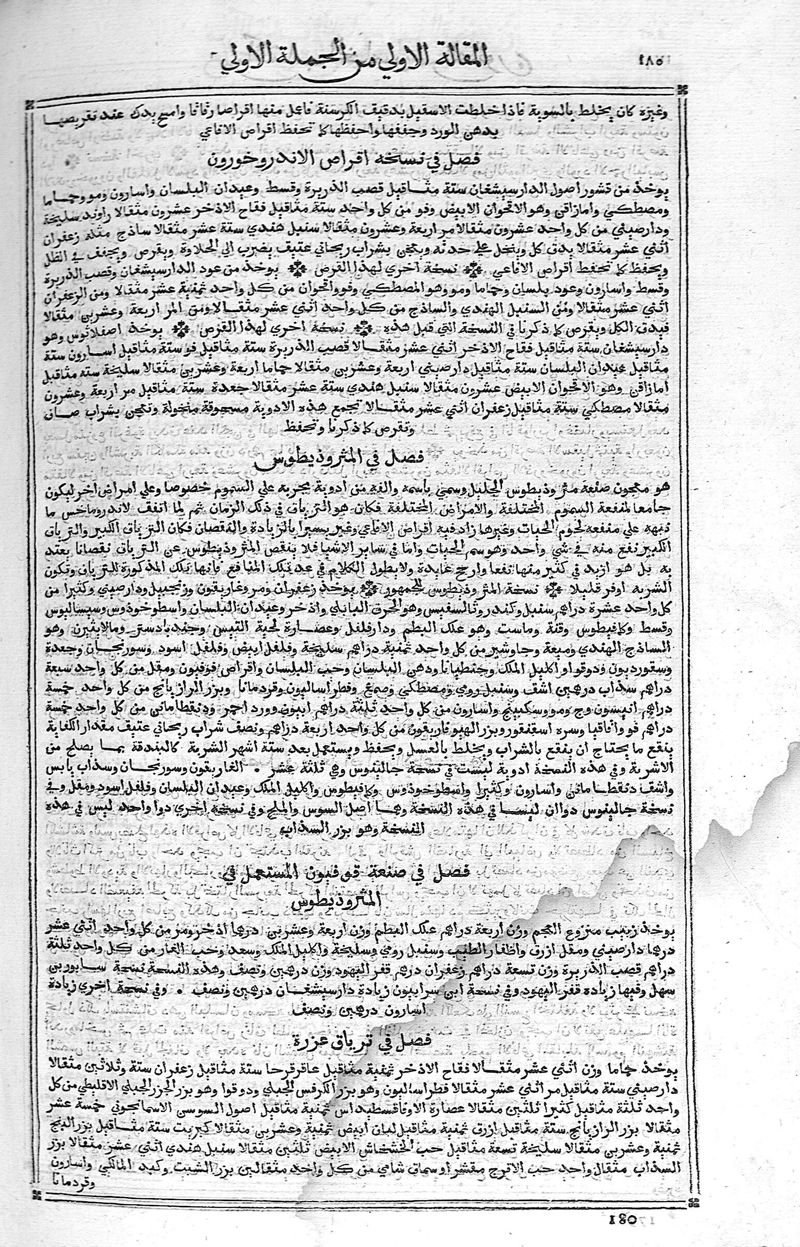 المقالة الاولي من الجملة الاولي
وغيره كان يخلط بالسوية فاذا خلطت الاسقيل بدقيق الكرسنة فاعمل منها اقراصا رقاقا وامسح يدك عند تقريصها
بدهن الورد وجففها واحفظها كما تحفظ اقراص الافاعي
فصل في نسخة اقراص الاندروخورون
يوخذ من قشور اصول الدارسيشغان ستة مثاقيل قصب الذريرة وقسط وعيدان البلسان واسارون ومو وحماما
ومصطكي وامازاقن وهو الاقحوان الابيض وفو من كل واحد ستة مثاقيل فقاح الاذخر عشرون مثقالا راوند سليخة
ودارصيني من كل واحد عشرون مثقالا مر اربعة وعشرون مثقالا سنبل هندي ستة عشر مثقالا ساذج مثله زعفران
اثني عشر مثقالا يدق كل وينخل علي حدته ويعجن بشراب ريحاني عتيق يضرب الي الحلاوة ويقرص ويجفف في الظل
ويحفظ كما تحفظ اقراص الافاعي نسخة اخري لهذا القرص يوخذ من عود الدارسيشغان وقصب الذريرة
وقسط واسارون وعود بلسان وحماما ومو وهو المصطكي وفو واقحوان من كل واحد ثمنية عشر مثقالا ومن الزعفران
اثني عشر مثقالا ومن السنبل الهندي والساذج من كل واحد اثني عشر مثقالا ومن المر اربعة وعشرين مثقالا
فيدق الكل ويقرص كما ذكرنا في النسخة التي قبل هذه نسخة اخري لهذا القرص يوخذ اصفلاثوس وهو
دارسيشغان ستة مثاقيل فقاح الاذخر اثني عشر مثقالا قصب الذريرة ستة مثاقيل فو ستة مثاقيل اسارون ستة
مثاقيل عيدان البلسان ستة مثاقيل دارصيني اربعة وعشرين مثقالا حماما اربعة وعشرين مثقالا سليخة ستة مثاقيل
امازاقن وهو الاقحوان الابيض عشرون مثقالا سنبل هندي ستة عشر مثقالا جعدة ستة مثاقيل مر اربعة وعشرون
مثقالا مصطكي ستة مثاقيل زعفران اثني عشر مثقالا تجمع هذه الادوية مسحوقة منخولة وتعجن بشراب صاف
وتقرص كما ذكرنا وتحفظ
فصل في المثروذيطوس
هو معجون صنعه مثروذيطوس الجليل وسمي باسمه والفه من ادوية مجربة علي السموم خصوصا وعلي امراض اخر ليكون
جامعا لمنفعة السموم المختلفة والامراض المختلفة فكان هو الترياق في ذلك الزمان ثم لما اتفق لاندروماخس ما
تنبه علي منفعة لحوم الحيات وغيرها زاد فيه اقراص الافاعي وغير يسيرا بالزيادة والنقصان فكان الترياق الكبير والترياق
الكبير انفع منه في شي واحد وهو سم الحيات واما في ساير الاشيا فلا ينقص المثروذيطوس عن الترياق نقصانا يعتد
به بل هو ازيد في كثير منها نفعا وارجح عايدة ولا يطول الكلام في عد تلك المنافع فانها تلك المذكورة للترياق وتكون
الشربة اوفر قليلا نسخة المثروذيطوس للجمهور يوخذ زعفران ومر وغاريقون وزنجبيل ودارصيني وكثيرا من
كل واحد عشرة دراهم سنبل وكندر وثالسفيس وهو الحرف البابلي واذخر وعيدان البلسان واسطوخوذوس وسيساليوس
وقسط وكمافيطوس وقنة وماست وهو علك البطم ودار فلفل وعصارة لحية التيس وجندبادستر ومالابثرن وهو
الساذج الهندي وميعة وجاوشير من كل واحد ثمنية دراهم سليخة وفلفل ابيض وفلفل اسود وسورنجان وجعدة
وسقورديون ودوقو او اكليل الملك وجنطيانا ودهن البلسان وحب البلسان واقراص قوفيون ومقل من كل واحد سبعة
دراهم سذاب درهمين اشف وسنبل رومي ومصطكي وصمغ وفطراساليون وقردمانا وبزر الرازيانج من كل واحد خمسة
دراهم انيسون وج ومو وسكبينج واسارون من كل واحد ثلثة دراهم افيون وورد احمر ودنقطامانن من كل واحد خمسة
دراهم فو واقاقيا وسره اسقنقور وبزر الهيوفاريقون من كل واحد اربعة دراهم ونصف شراب ريحاني عتيق مقدار الكفاية
ينقع ما يحتاج ان ينقع بالشراب ويخلط بالعسل ويحفظ ويستعمل بعد ستة اشهر الشربة كالبندقة بما يصلح من
الاشربة وفي هذه النسخة ادوية ليست في نسخة جالينوس وهي ثلثة عشر الغاريقون وسورنجان وسذاب يابس
واشف دنقطامانن واسارون وكثيرا واسطوخوذوس وكمافيطوس واكليل الملك وعيدان البلسان وفلفل اسود ومقل وفي
نسخة جالينوس دواان ليسا في هذه النسخة وهما اصل السوس والملح وفي نسخة اخري دوا واحد ليس في هذه
النسخة وهو بزر السذاب
فصل في صنعة قوفيون المستعمل في
المثروذيطوس
يوخذ زبيب منزوع العجم وزن اربعة دراهم علك البطم وزن اربعة وعشرين درهما اذخر ومر من كل واحد اثني عشر
درهما دارصيني ومقل ازرق واظفار الطيب وسنبل رومي وسليخة واكليل الملك وسعد وحب الغار من كل واحد ثلثة
دراهم قصب الذريرة وزن تسعة دراهم زعفران درهم قفر اليهود وزن درهمين ونصف وهذه النسخة نسخة سابور بن
سهل وفيها زيادة قفر اليهود وفي نسخة ابن سرابيون زيادة دارسيشغان درهمين ونصف وفي نسخة اخري زيادة
اسارون درهمين ونصف
فصل في ترياق عزرة
يوخذ حماما وزن اثني عشر مثقالا فقاح الاذخر ثمنية مثاقيل عاقرقرحا ستة مثاقيل زعفران ستة وثلاثين مثقالا
دارصيني ستة مثاقيل مر اثني عشر مثقالا فطراساليون وهو بزر الكرفس الجبلي ودوقوا وهو بزر الجزر الجبلي الاقليطي من كل
واحد ثلثة مثاقيل كثيرا ثلثين مثقالا عصارة الاوفاقسطيداس ثمنية مثاقيل اصول السوسن الاسمانجوني خمسة عشر
مثقالا بزر الرازيانج ستة مثاقيل ازرق ثمنية مثاقيل لبان ابيض ثمنية وعشرين مثقالا كبريت ستة مثاقيل بزر البنج
ثمنية وعشرين مثقالا سليخة تسعة مثاقيل حب الخشخاش الابيض ثلثين مثقالا سنبل هندي اثني عشر مثقالا بزر
السذاب مثقال واحد حب الاترج مقشر او سماق شامي من كل واحد مثقالين بزر الشبت وكبد المالكي واسارون
وقردمانا